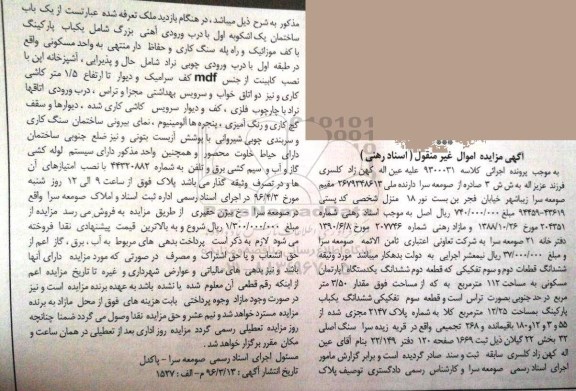 آگهی مزایده اموال غیر منقول (اسناد رهنی)
به موجب پرونده اجرائی کلاسه ۹۳۰۰۰۳۱ علیه آقای عین اله کهن زاد کلسری
فرزند عزیز اله به ش ش ۳ صادره از صومعه سرا دارنده ملی ۲۶۷۹۳۴۸۶۱۳ مقیم
صومعه سرا زیباشهر خیابان فجر بن بست نور ۱۸ منزل شخصی کد پستی
۳۳۶۱۹-۹۴۴۵۹ مبلغ ۷۴۰/۰۰۰/۰۰۰ ریال اصل به موجب اسناد رهنی شماره
۲۰۴۳۵۱ مورخ ۱۳۸۸/۱۰/۲۶ و مازاد رهنی شماره ۲۰۷۷۳۶ مورخ ۱۳۹۰/۶/۸
دفتر خانه ۲۱ صومعه سرا به شرکت تعاونی اعتباری ثامن الائمه صومعه سرا
و مبلغ ۳۷/۰۰۰/۰۰۰ ریال نیمعشر اجرایی به دولت بدهکار میباشد مورد وثیقه
ششدانگ قطعات دوم و سوم تفکیکی که قطعه دوم ششدانگ یکدستگاه آپارتمان
مسکونی به مساحت ۱۱۲ مترمربع به که از مساحت فوق مقدار ۳/۵۰ متر
مربع در حد جنوبی بصورت تراس است و قطعه سوم تفکیکی ششدانگ یکباب
پارکینگ بمساحت ۱۲/۲۵ مترمربع کلا به شماره پلاک ۲۱۴۷ مجزی شده از
۵۵ و ۳ و ۱۲ و ۱۸۰ باقیمانده و ۲۶۸ تجمیعی واقع در قریه زیده سرا سنگ اصلی
۳۲ بخش ۲۲ گیلان ذیل ثبت ۱۶۶۹ صفحه ۱۲۰ دفتر ۲۲/۱۴۹ بنام آقای عین
اله کهن زاد کلسری سابقه ثبت و سند صادر گردیده است و برابر گزارش مامور
اجرای اسناد رسمی صومعه سرا و کارشناس رسمی دادگستری توصیف پلاک
مذکور به شرح ذیل میباشد ، در هنگام بازدید ملک تعرفه شده عبارتست از یک باب
ساختمان یک اشکوبه اول با درب ورودی آهنی بزرگ شامل یکباب پارکینگ
با کف موزائیک و راه پله سنگ کاری و حفاظ دار منتهی به واحد مسکونی واقع
در طبقه اول با درب ورودی چوبی نراد شامل حال و پذیرایی ، آشپزخانه اپن با
نصب کابینت از جنس mdf کف سرامیک و دیوار تا ارتفاع ۱/۵ متر کاشی
کاری و نیز دو اتاق خواب و سرویس بهداشتی مجزا و تراس ، درب ورودی اتاقها
نراد با چارچوب فلزی ، کف و دیوار سرویس کاشی کاری شده ، دیوارها و سقف
گچ کاری و رنگ آمیزی ، پنجره ها آلومینیوم ، نمای بیرونی ساختمان سنگ کاری
و سربندی چوبی شیروانی با پوشش آزبست بتونی و نیز ضلع جنوبی ساختمان
دارای حیاط خلوت محصور و همچنین واحد مذکور دارای سیستم لوله کشی
گاز و آب و سیم کشی برق و تلفن به شماره ۴۴۳۲۰۸۸۲ با نصب امتیازهای آن
ها و در تصرف وثیقه گذار می باشد پلاک فوق از ساعت ۹ الی ۱۲ روز شنبه
مورخ ۹۶/۴/۳ در اجرای اسناد رسمی اداره ثبت اسناد و املاک صومعه سرا واقع
در صومعه سرا – بن برق حقیری از طریق مزایده به فروش می رسد مزایده از
مبلغ ۱/۳۰۰/۰۰۰/۰۰۰ ریال شروع و به بالاترین قیمت پیشنهادی نقدا فروخته
می شود لازم به ذکر است پرداخت بدهی های مربوط به آب ، برق ، گاز اعم از
حق انشعاب و یا حق اشتراک و مصرف در صورتی که مورد مزایده دارای آنها
باشد و نیز بدهی های مالیاتی و عوارض شهرداری و غیره تا تاریخ مزایده اعم
از اینکه رقم قطعی آن معلوم شده یا نشده باشد به عهده برنده مزایده است و نیز
در صورت وجود مازاد وجوه پرداختی بابت هزینه های فوق از محل مازاد به برنده
مزایده مسترد خواهد شد و نیم عشر و حق مزایده نقدا وصول می گردد ضمنا چنانچه
روز مزایده تعطیلی رسمی گردد مزایده روز اداری بعد از تعطیلی در همان ساعت و
مکان مقرر برگزار خواهد شد.
مسئول اجرای اسناد رسمی صومعه سرا – پاکدل
تاریخ انتشار آگهی : ۹۶/۳/۱۳ م – الف : ۱۵۲۷